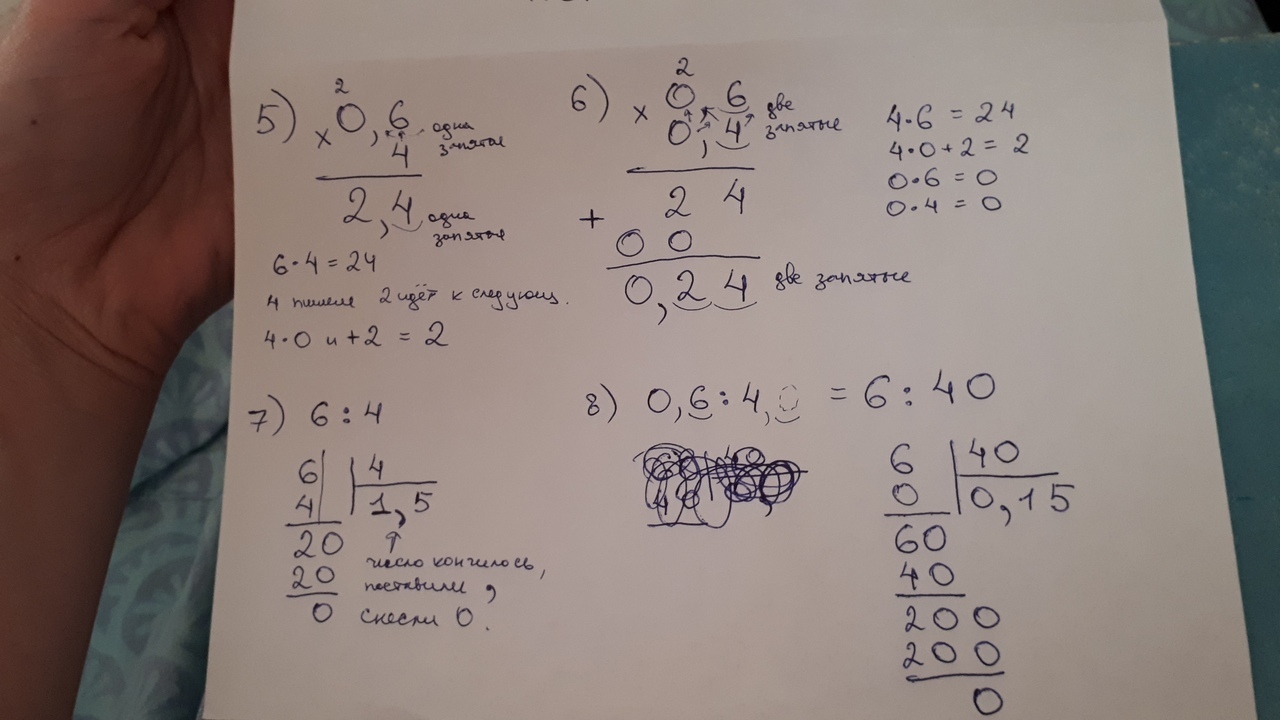 5)
2
× 0,6 одна запятая
4
2,4 одна запятая
6·4=24
4 пишем 2 идёт к следующ.
4·0 и +2 = 2
6)
2
× 0 6 две запятые
0,4
2 4
+
0 0
0,2 4 две запятые
4·6 = 24
4·0+2 = 2
0·6 = 0
0·4 = 0
7) 6:4
6 4
4 1,5
20
20
0
число кончилось,
поставили ,
снесли 0.
8) 0,6:4,0 = 6:40
6 40
0 0,15
60
40
200
200
0